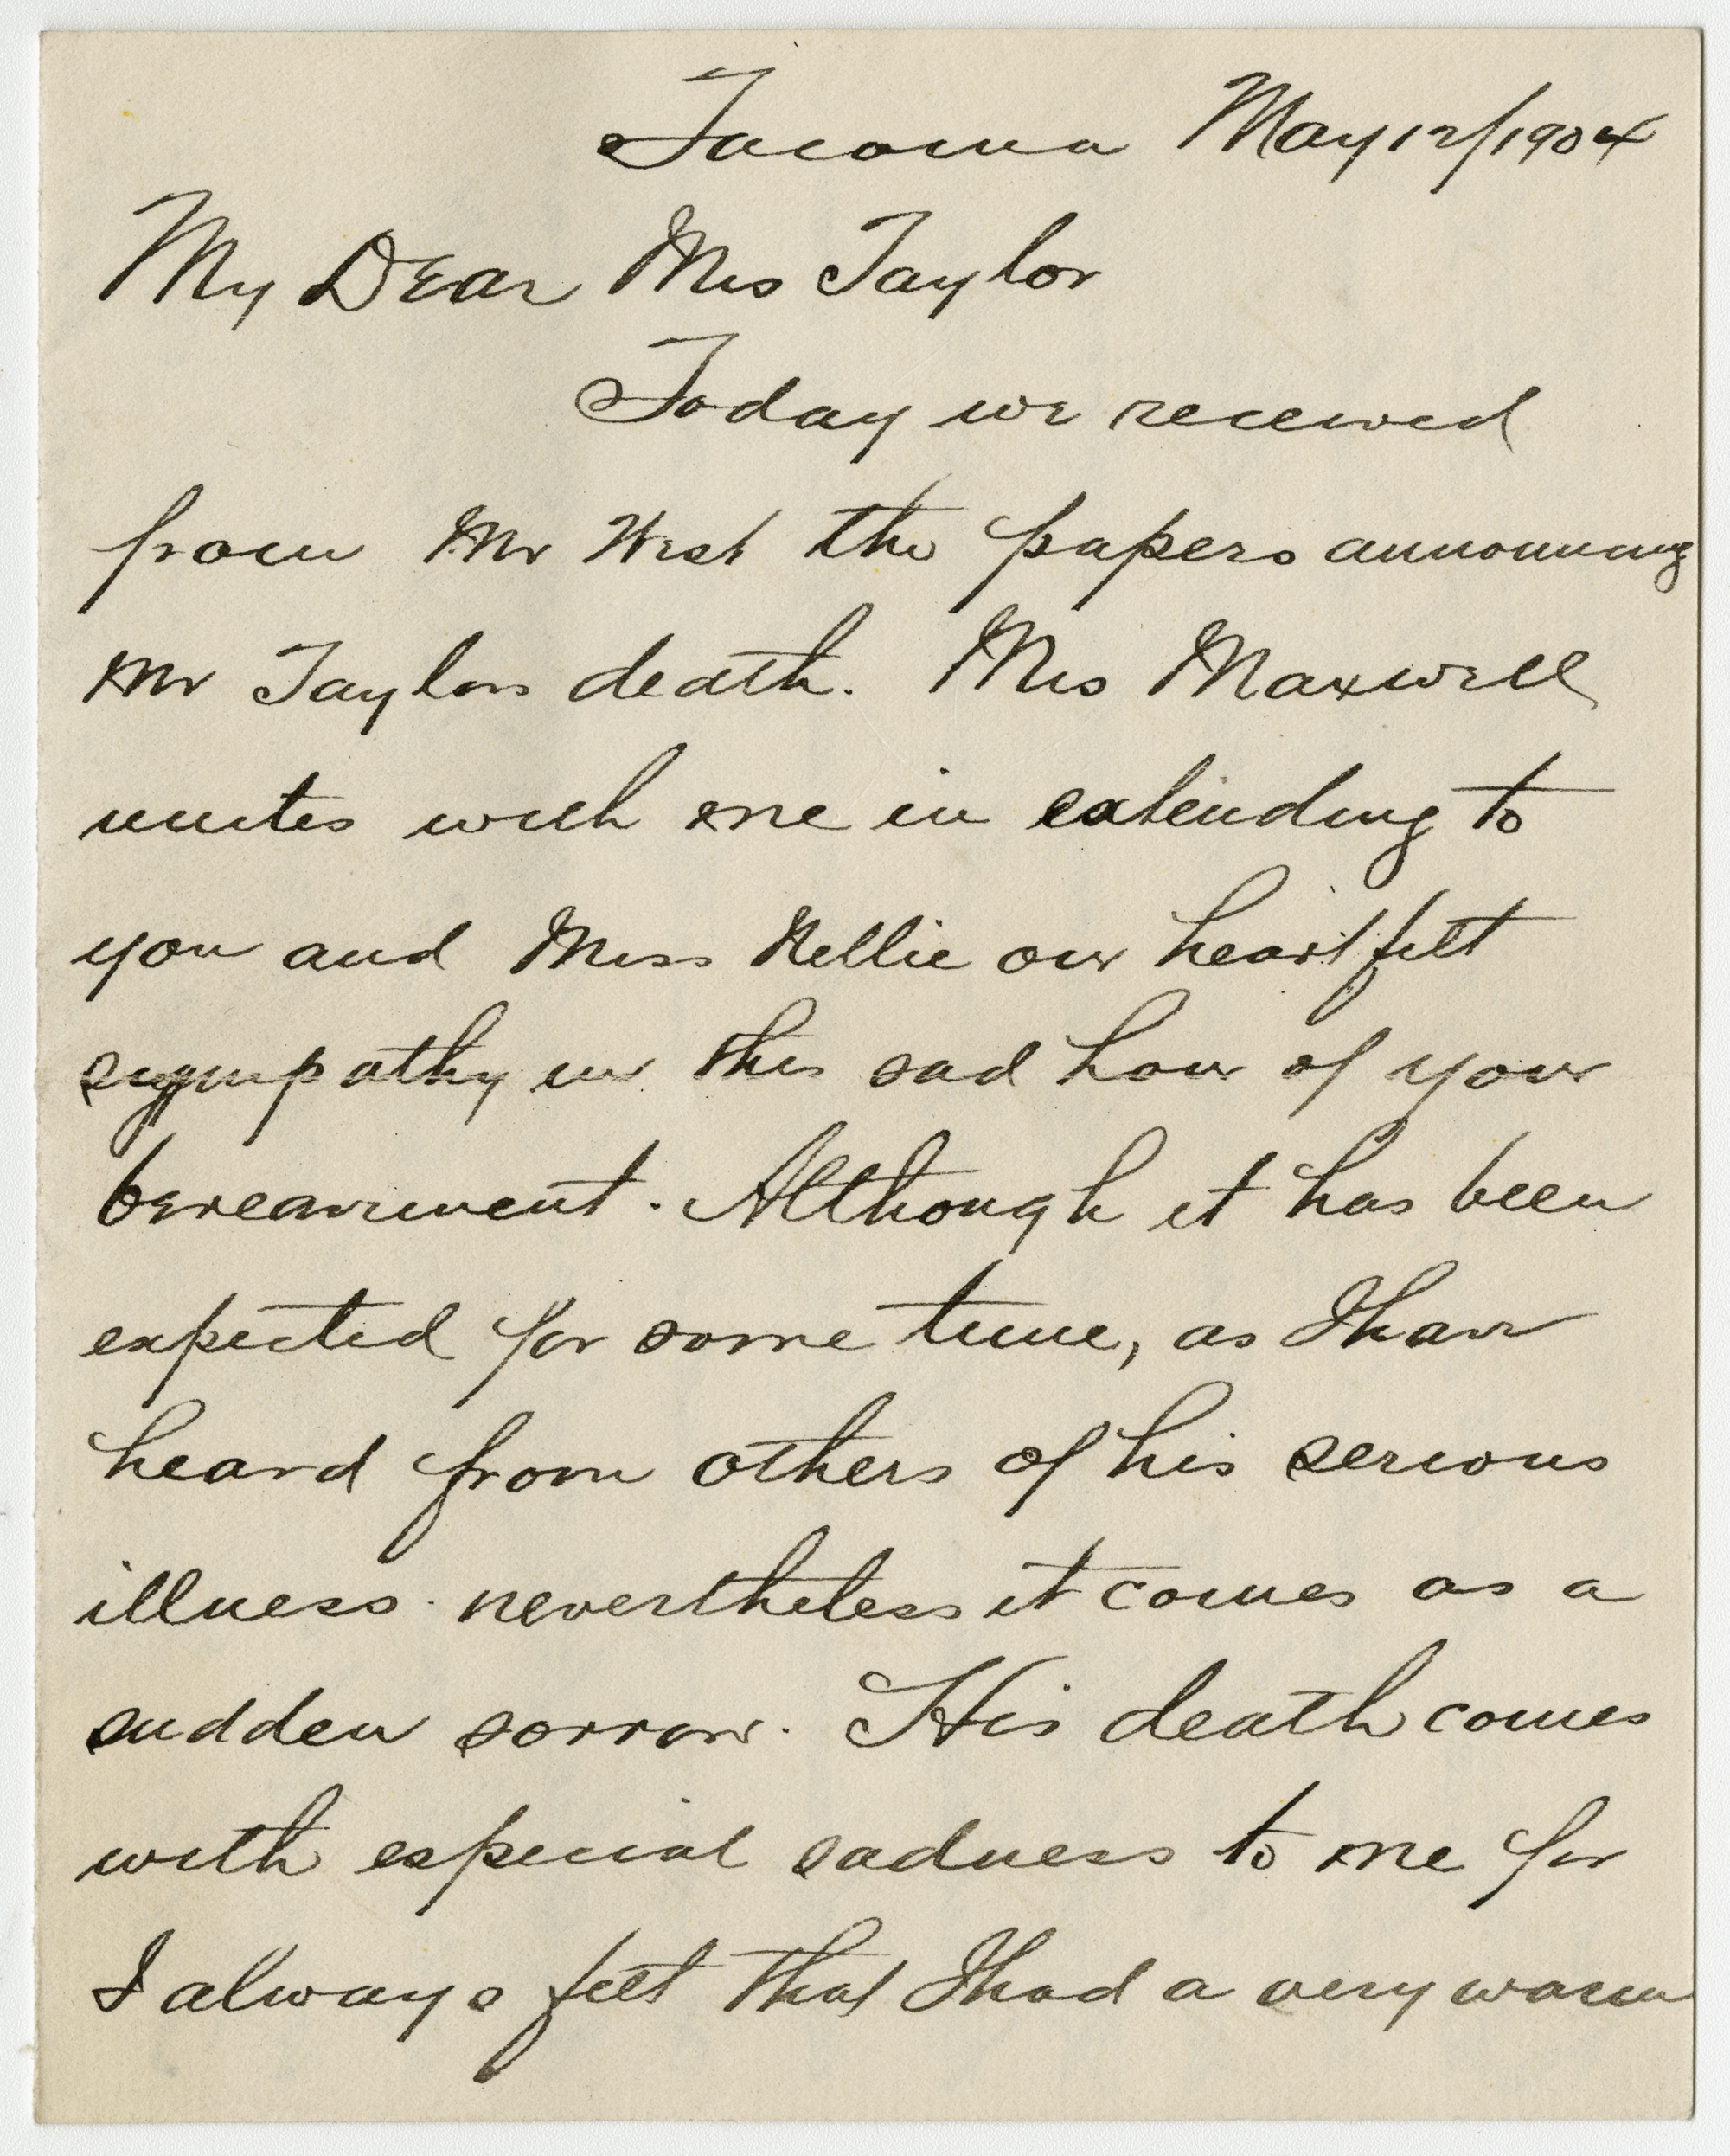 Tacoma May 12/1904
My Dear Mrs Taylor
Today we received
from Mr West the papers announcing
Mr Taylors death. Mrs Maxwell
unites with me in extending to
you and Miss Nellie our heartfelt
sympathy in this sad hour of your
bereavement. Although it has been
expected for some time, as I have
heard from others of his serious
illness. nevertheless it comes as a
sudden sorrow. His death comes
with especial sadness to me for
I always felt that I had a very warm